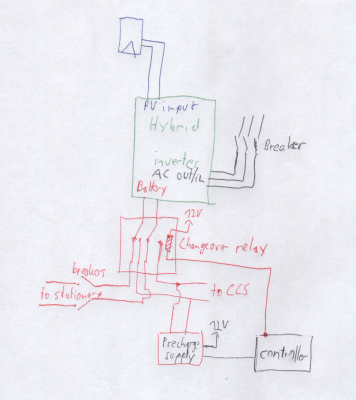 PV input
Hybrid
inverter
AC out/in
Breaker
Battery
12V
Changeover relay
breakers
to stationary
to CCS
12V
Precharge
supply
controller